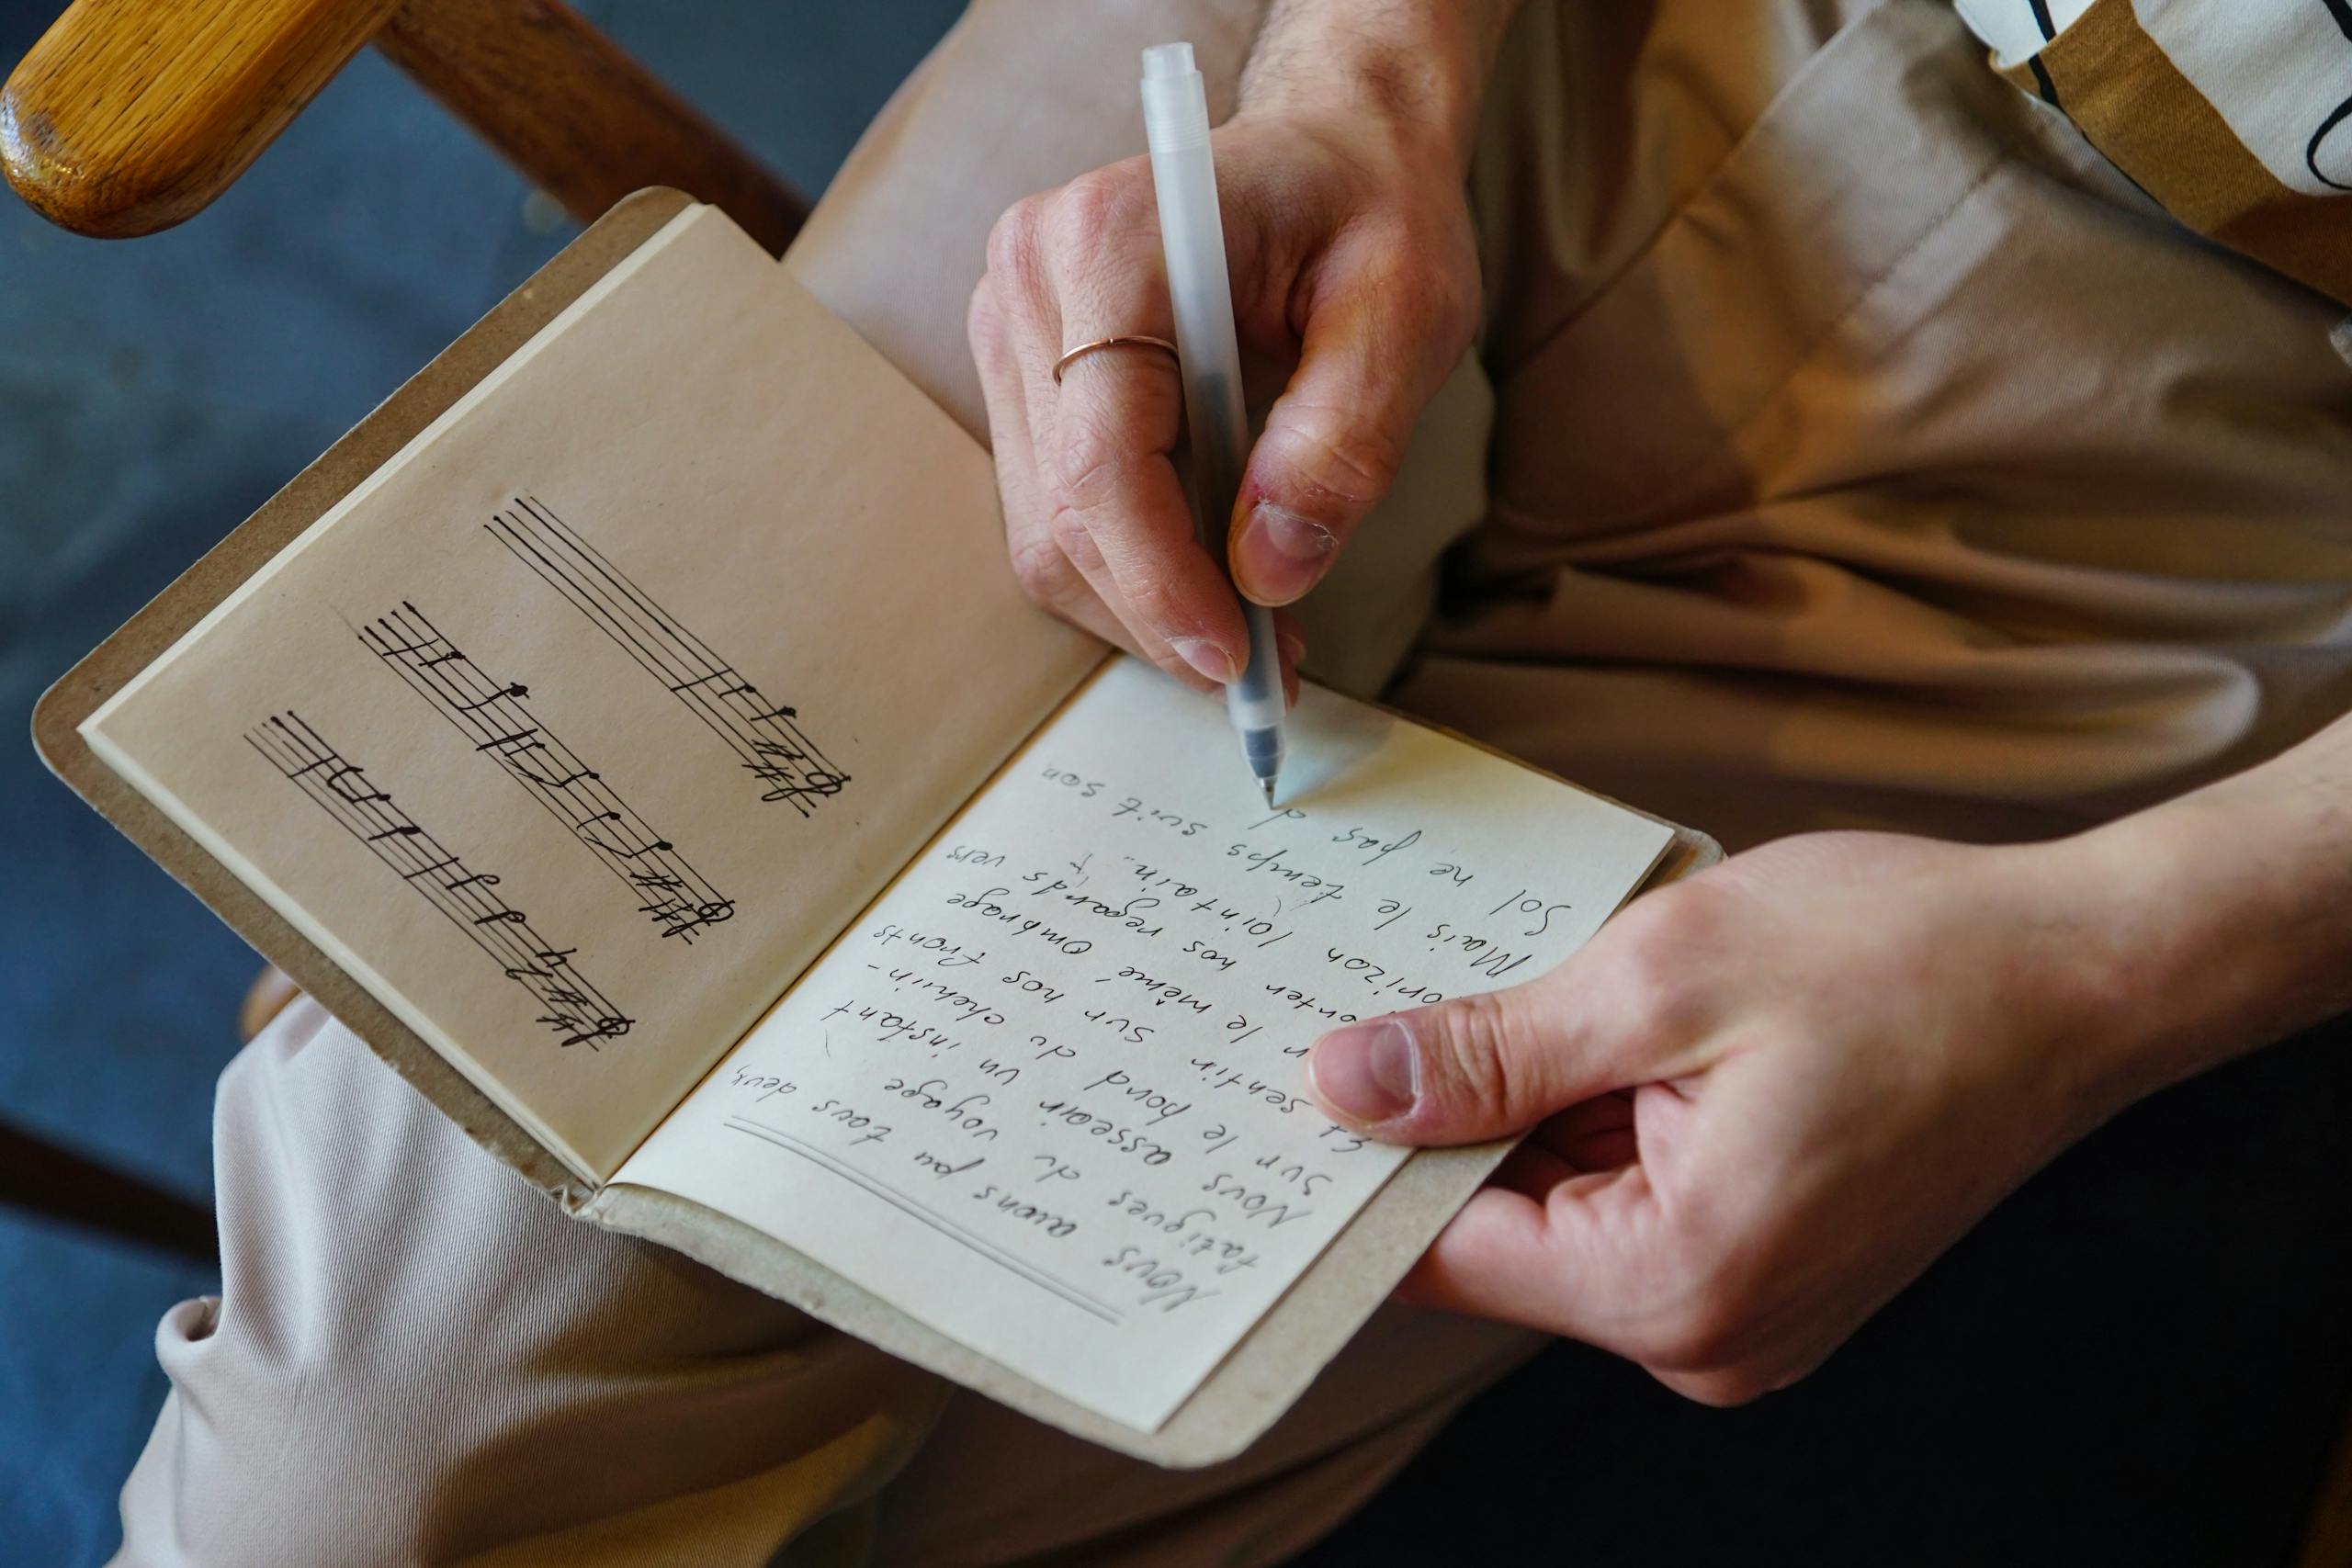 Nous avions pu tous deux,
fatigues du voyage
Nous asseoir un instant
sur le bord du chemin-
Et sentir sur nos fronts
le même ombrage
onter nos regards vers
orizon lointain..
Mais le temps suit son
Sol ne pas d